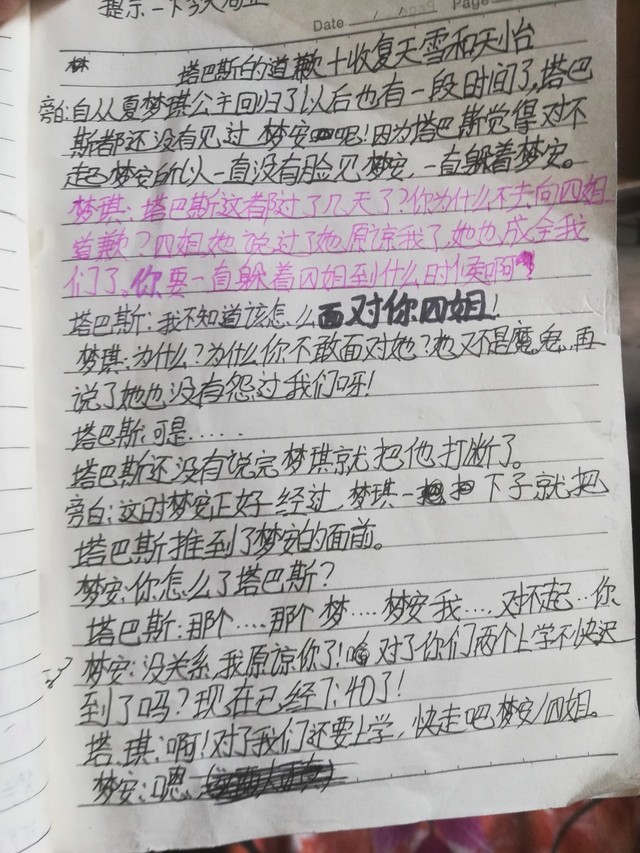 提示一下
Date Page
塔巴斯的道歉+收复天雪和天怡
旁白:自从夏梦琪公主回归了以后也有一段时间了,塔巴
斯都还没有见过梦安呢!因为塔巴斯觉得对不
起梦安所以一直没有脸见梦安,一直躲着梦安。
梦琪:塔巴斯这都过了几天了?你为什么不去向四姐
道歉?四姐她说过了她原谅我了,她也成全我
们了。你要一直躲着四姐到什么时候啊?
塔巴斯:我不知道该怎么面对你四姐!
梦琪:为什么?为什么你不敢面对她?她又不是魔鬼,再
说了她也没有怨过我们呀!
塔巴斯:可是......
塔巴斯还没有说完梦琪就把他打断了。
旁白:这时梦安正好经过,梦琪一下子就把
塔巴斯推到了梦安的面前。
梦安:你怎么了塔巴斯?
塔巴斯:那个....那个梦....梦安我....对不起...你
梦安:没关系,我原谅你了!对了你们两个上学不快迟
到了吗?现在已经7:40了!
塔.琪:啊!对了我们还要上学,快走吧,梦安/四姐。
梦安:嗯